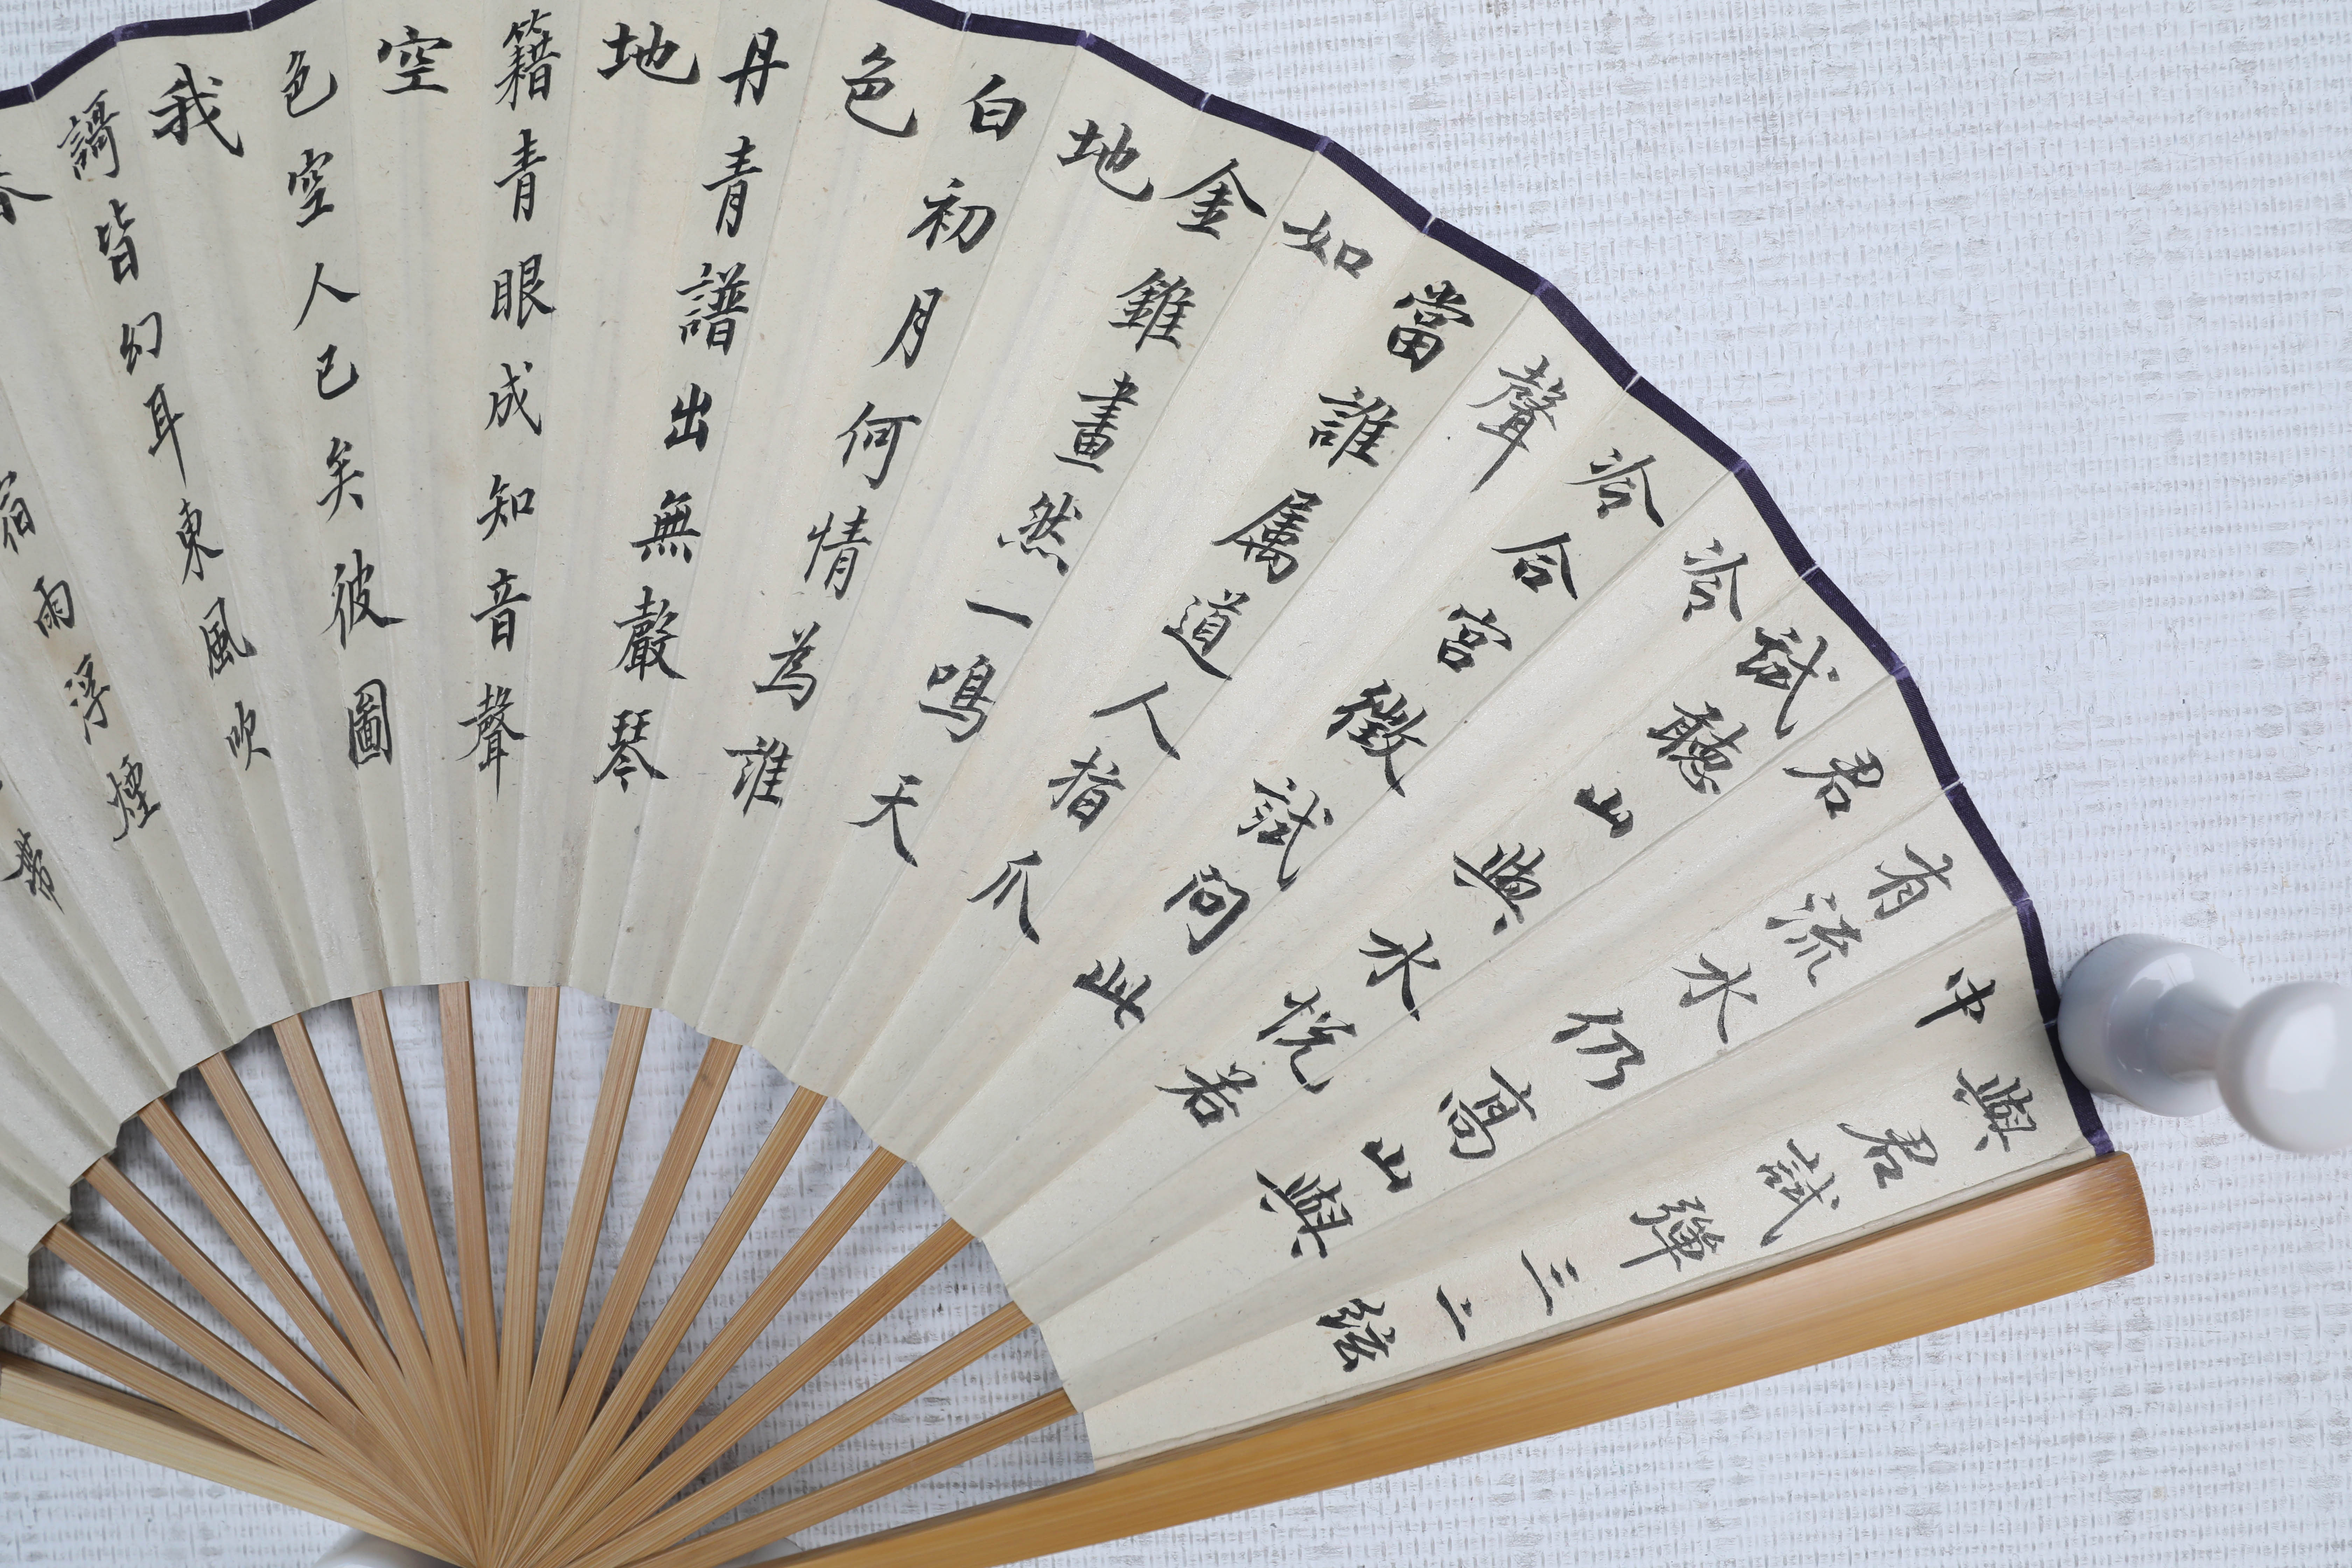 與君試彈三二絃
中
有流水仍高山與
君
試聽山與水恍若
泠
泠合宮徵試問此
聲
當誰屬道人指爪
如
金錐畫然一鳴天
地
白初月何情為誰
色
丹青譜出無聲琴
地
籍青眼成知音聲
空
色空人已矣彼圖
我
謌皆幻耳東風吹
春
宿雨浮煙
帶